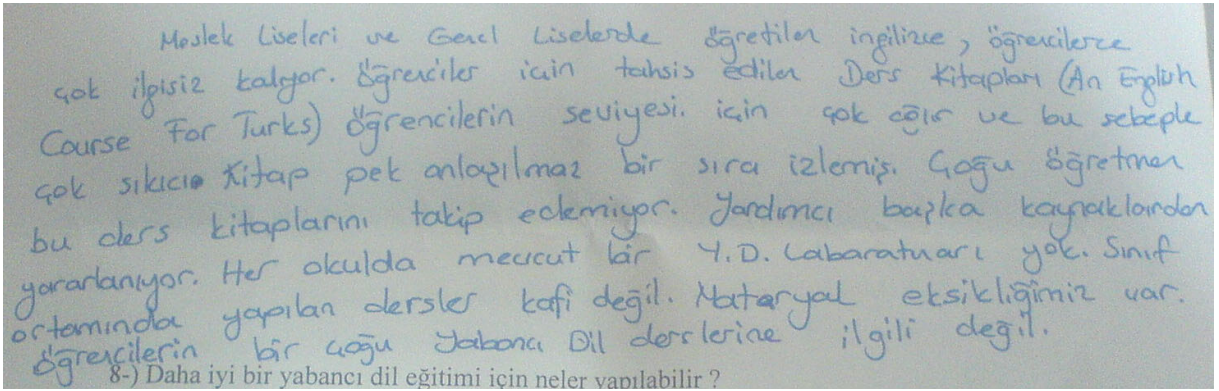 Meslek Liseleri ve Genel Liselerde öğretilen ingilizce, öğrencilerce
çok ilgisiz kalıyor. Öğrenciler için tahsis edilen Ders Kitapları (An English
Course For Turks) öğrencilerin seviyesi için çok ağır ve bu sebeple
çok sıkıcı. Kitap pek anlaşılmaz bir sıra izlemiş. Çoğu öğretmen
bu ders kitaplarını takip edemiyor. Yardımcı başka kaynaklardan
yararlanıyor. Her okulda mevcut bir Y.D. Labaratuarı yok. Sınıf
ortamında yapılan dersler kafi değil. Mataryal eksikliğimiz var.
Öğrencilerin bir çoğu Yabancı Dil derslerine ilgili değil.
8-) Daha iyi bir yabancı dil eğitimi için neler yapılabilir ?